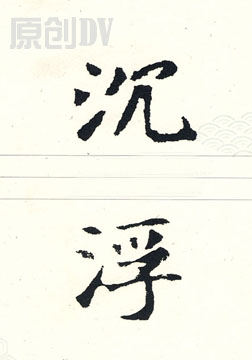 原创DV
沉
浮